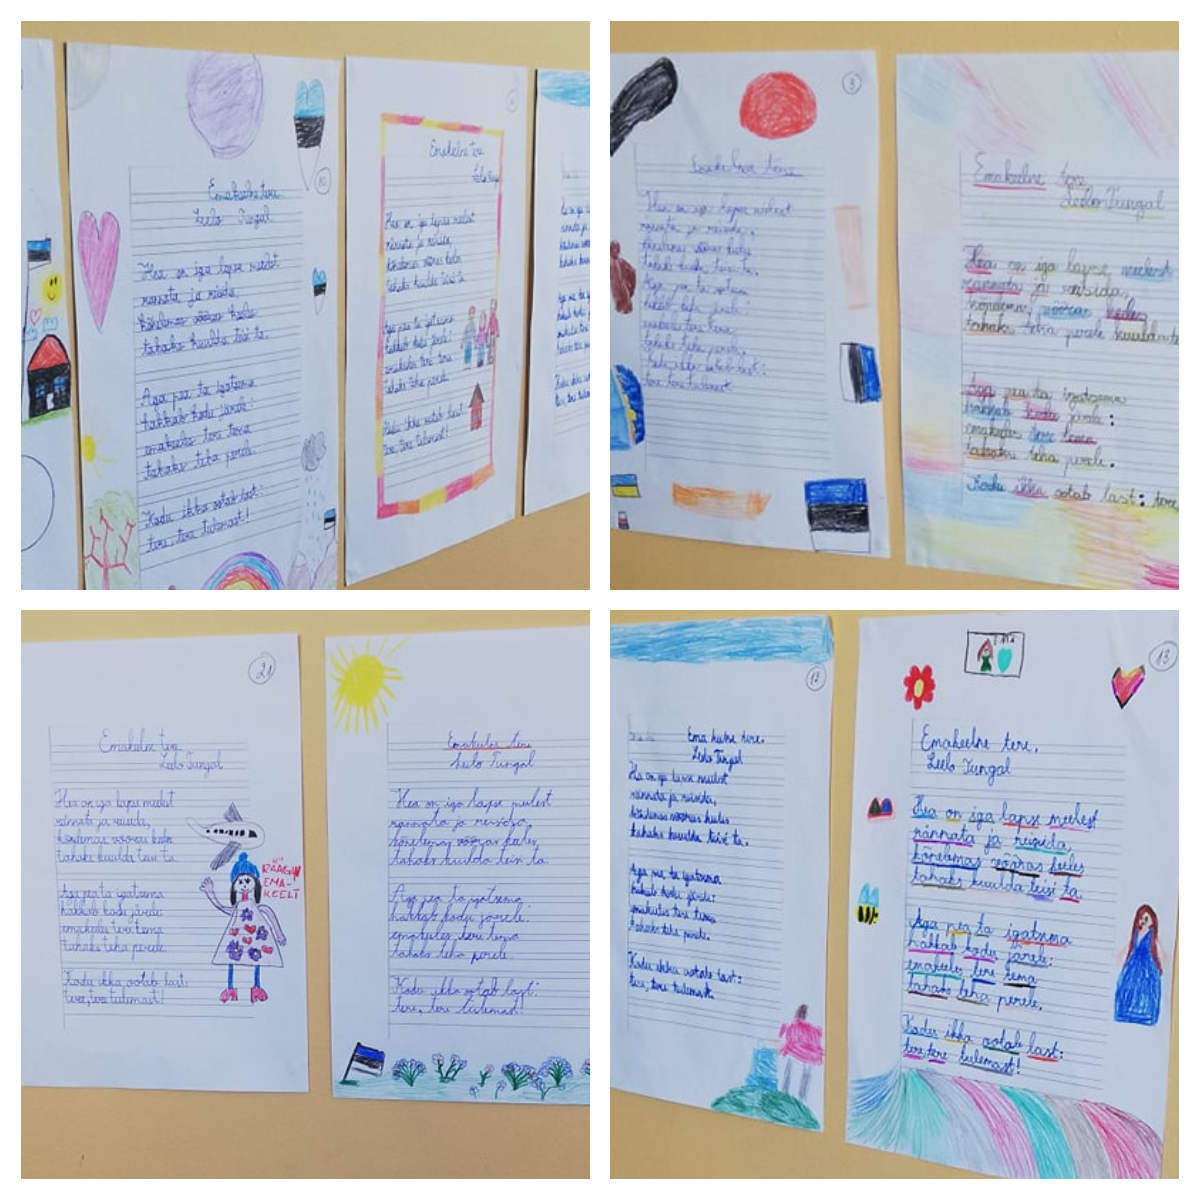 10
Emakeelne tere
Leelo Tungal
Hea on iga lapse meelest
rännata ja reisida,
kõneleмas võõras keeles
tahaks kuulda teisi ta.
Aga pea ta igatsema
hakkab kodu järele:
emakeeles tere tema
tahaks teha perele.
Kodu ikka ootab last:
tere, tere tulemast!
Emakeelne tere
Hea on iga lapse meelest
rännata ja reisida,
kõnelemas võõras keeles
tahaks kuulda teisi ta.
Aga pea ta igatsema
hakkab kodu järele:
emakeeles tere tema
tahaks teha perele.
Kodu ikka ootab last:
tere, tere tulemast!
3
Emakeelne tere
Hea on iga lapse meelest
rännata ja reisida,
kõnelemas võõras keeles
tahaks kuulda teisi ta.
Aga pea ta igatsema
hakkab kodu järele:
emakeeles tere tema
tahaks teha perele.
Kodu ikka ootab last:
tere, tere tulemast
Emakeelne tere
Leelo Tungal
Hea on iga lapse meelest
rännata ja reisida,
kõnelemas võõras keeles
tahaks teha perele kuulda te
Aga pea ta igatsema
hakkab kodu järele:
emakeeles tere tema
tahaks teha perele.
Kodu ikka ootab last: tere,
21
Emakeelne tere
Leelo Tungal
Hea on iga lapse meelest
rännata ja reisida,
kõnelemas võõras keeles
tahaks kuulda teisi ta.
Aga pea ta igatsema
hakkab kodu järele:
emakeeles tere tema
tahaks teha perele.
Kodu ikka ootab last:
tere, tere tulemast!
RÄÄGI
EMA-
KEELT
Emakeelne tere
Leelo Tungal
Hea on iga lapse meelest
rännata ja reisida,
kõnelemas võõras keeles
tahaks kuulda teisi ta.
Aga pea ta igatsema
hakkab kodu järele:
emakeeles tere tema
tahaks teha perele.
Kodu ikka ootab last:
tere, tere tulemast!
12
Ema keelne tere.
Leelo Tungal
Hea on iga lapse meelest
rännata ja reisida,
kõnelemas võõras keeles
tahaks kuulda teisi ta.
Aga pea ta igatsema
hakkab kodu järele:
emakeeles tere tema
tahaks teha perele.
Kodu ikka ootab last:
tere, tere tulemast.
13
Emakeelne tere.
Leelo Tungal
Hea on iga lapse meelest
rännata ja reisida,
kõnelemas võõras keeles
tahaks kuulda teisi ta.
Aga pea ta igatsema
hakkab kodu järele:
emakeeles tere tema
tahaks teha perele.
Kodu ikka ootab last:
tere, tere tulemast!